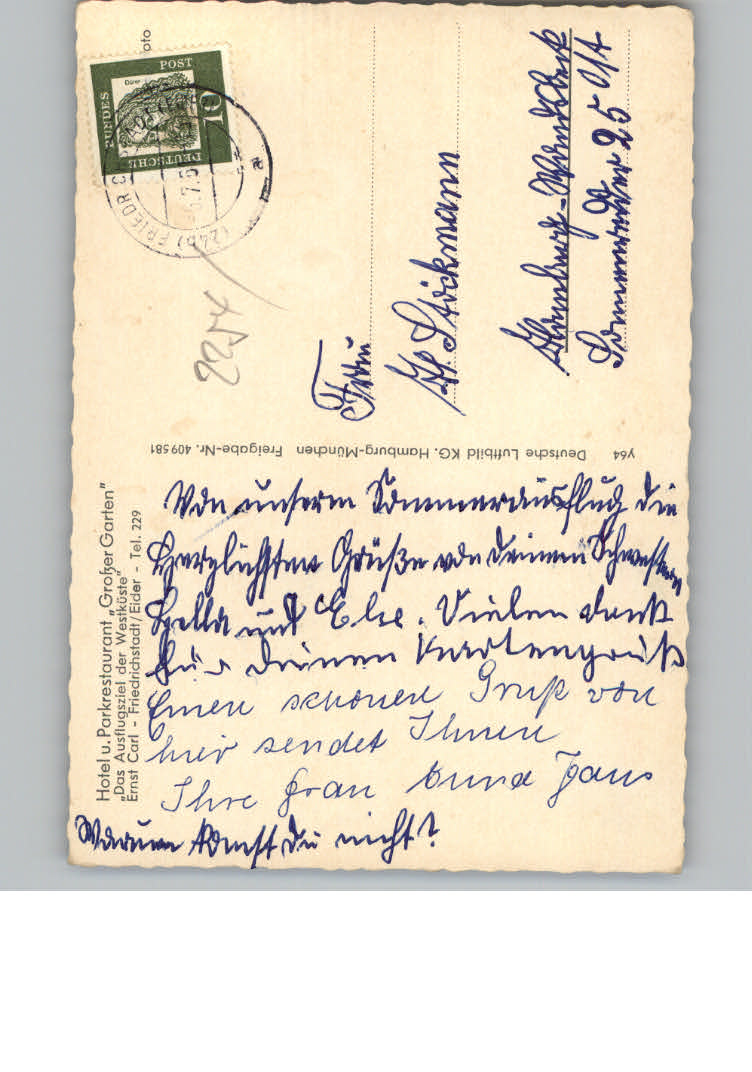 Hotel u. Parkrestaurant „Großer Garten"
„Das Ausflugsziel der Westküste"
Ernst Carl - Friedrichstadt/Eider - Tel. 229
Von unserm Sommerausflug die
herzlichsten Grüße von deinen Schwestern
Hella und Else. Vielen dank
für deinen Kartengruß
Einen schönen Gruß von
hier sendet Ihnen
Ihre Frau Anna
Warum kamst du nicht?
y64 Deutsche Luftbild KG. Hamburg-München Freigabe-Nr. 409581
oto
DEUTSCHE BUNDESPOST
10
(24b) FRIEDRICHSTADT (EIDER)
a
2254
Frau
H. Stöckmann
Hamburg-Wandsbek
25